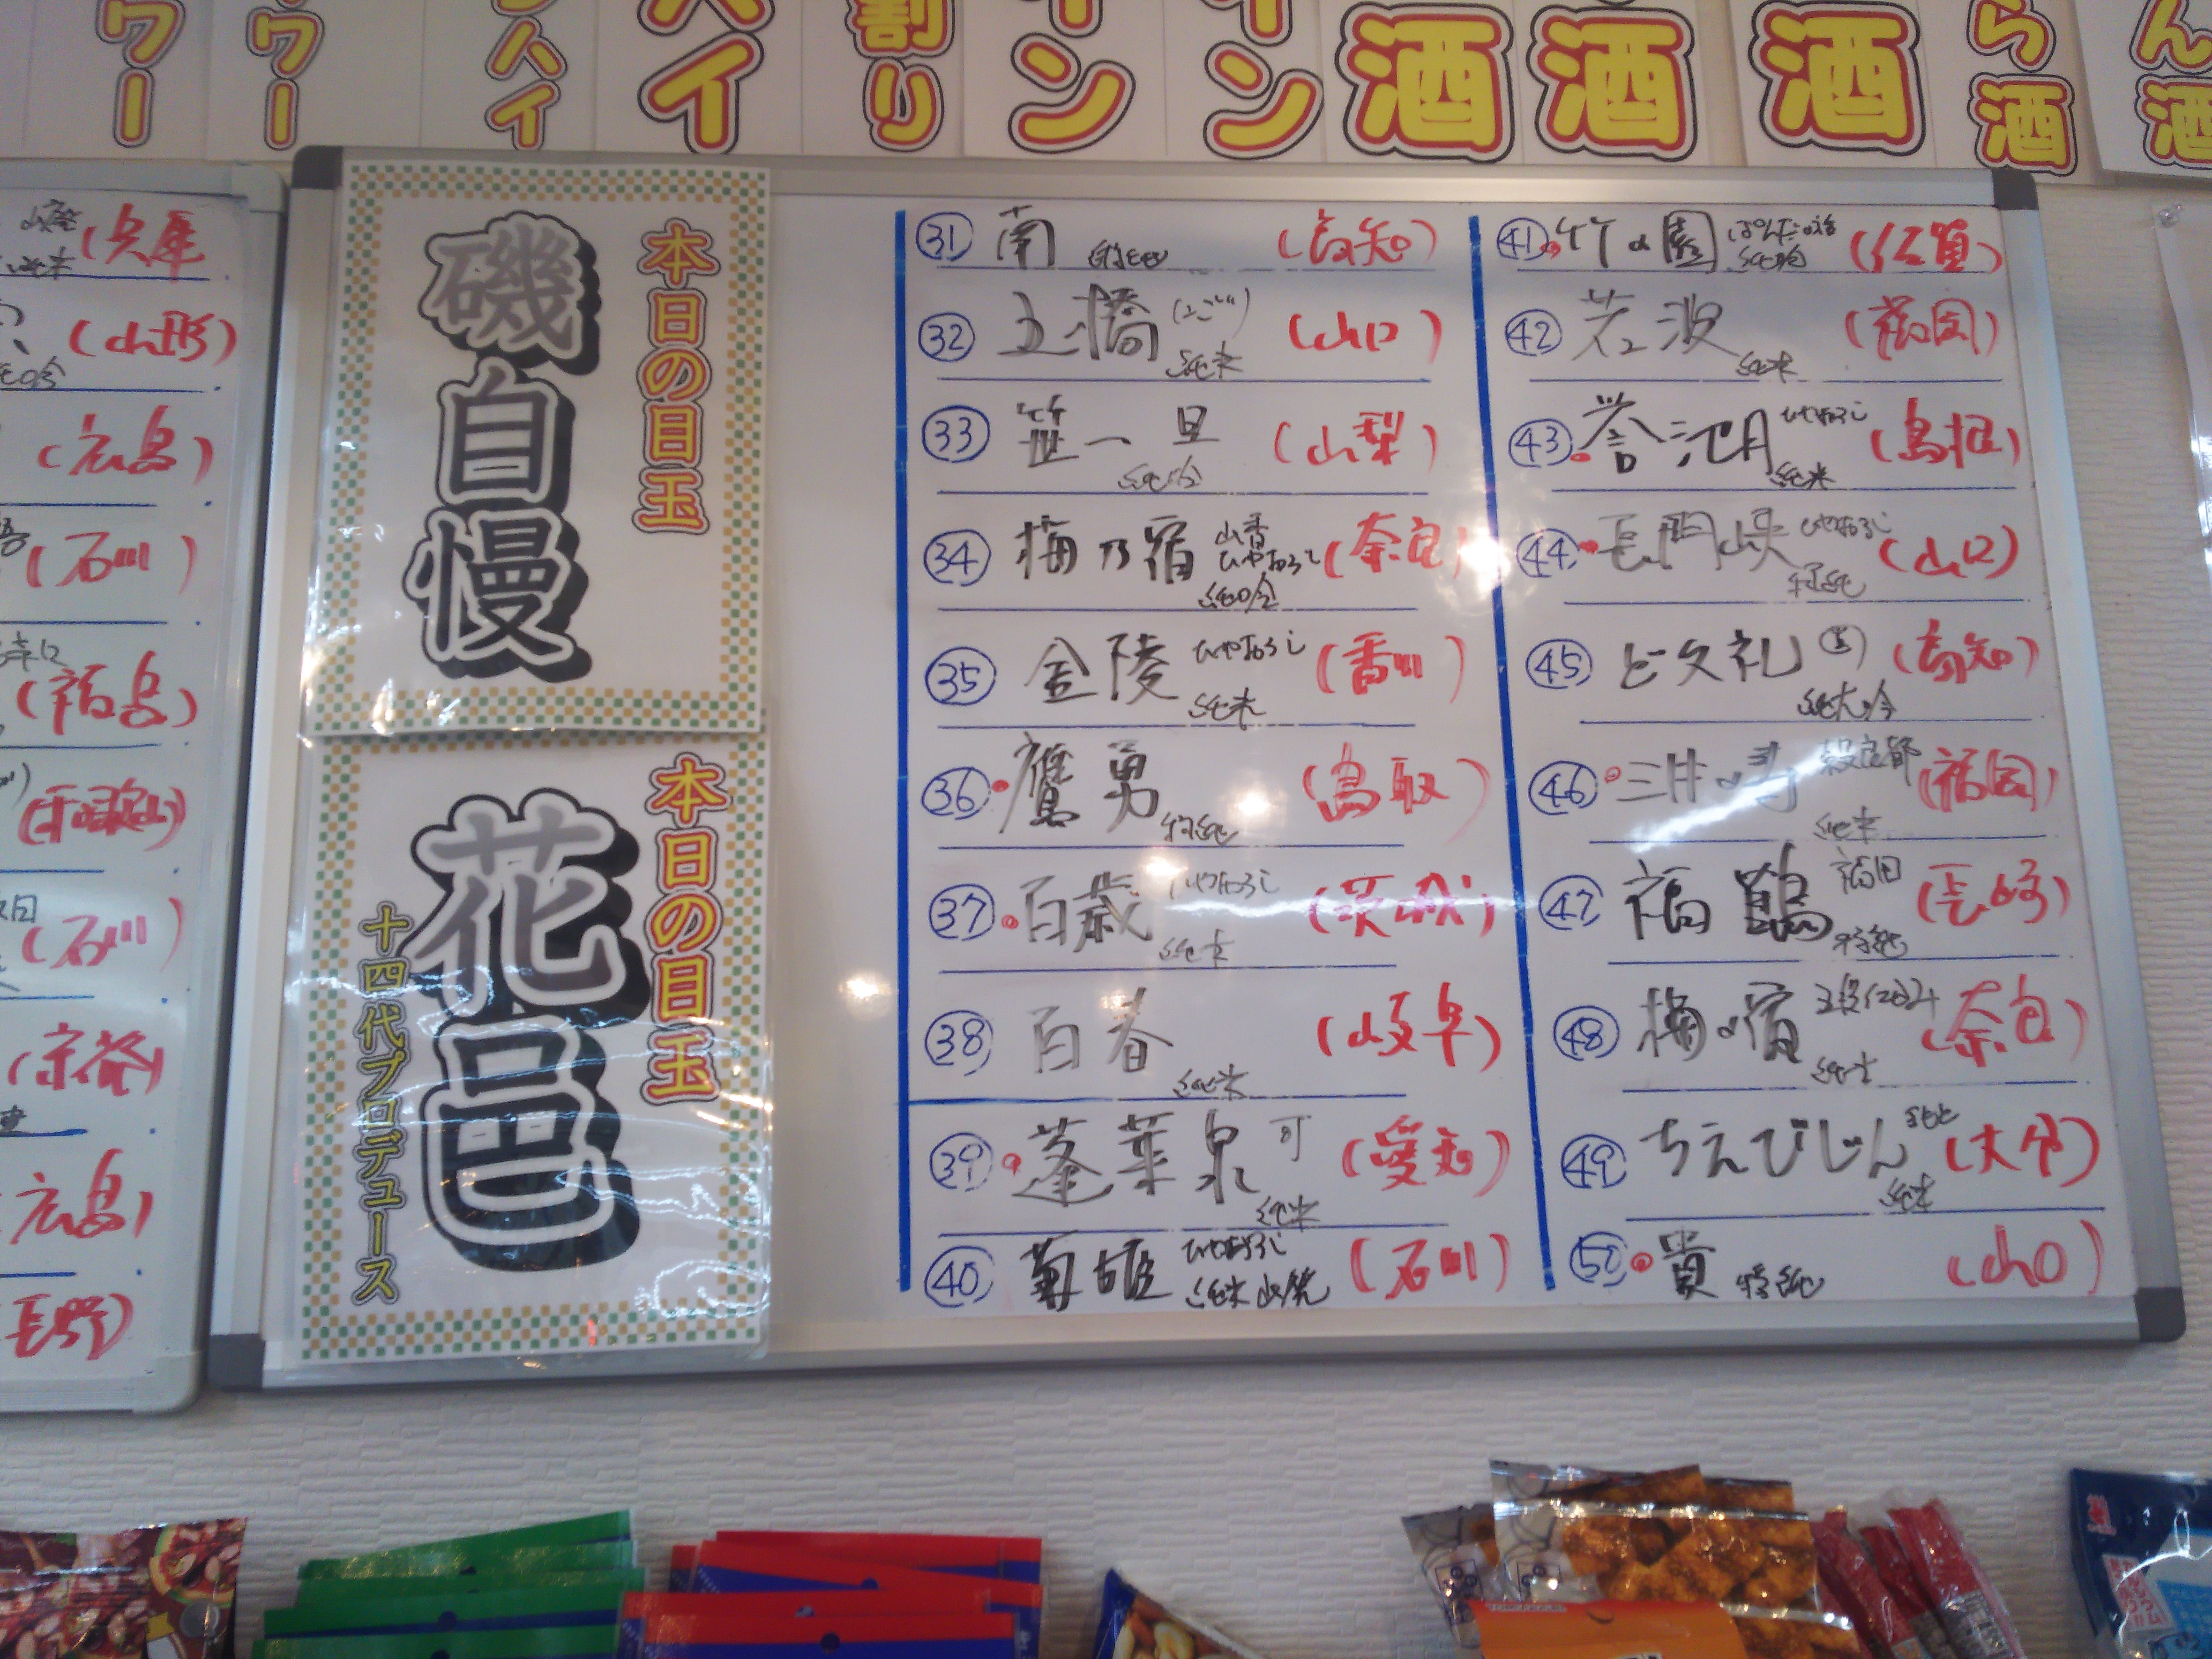 ワー
ワー
ハイ
ハイ
割り
イン
イン
酒
酒
酒
ら酒
ん酒
(兵庫
(山形)
(広島)
(石川)
(福島)
(和歌山)
(石川)
(京発)
(広島)
長野)
本日の目玉
磯自慢
本日の目玉
花邑
十四代プロデュース
31 南 特純 (高知)
32 五橋 (ごご) 純米 (山口)
33 笹一 旦 純吟 (山梨)
34 梅乃宿 山香 ひやおろし 純吟 (奈良)
35 金陵 ひやおろし 純米 (香川)
36 鷹勇 特純 (鳥取)
37 百歳 ひやおろし 純米 (茨城)
38 百春 純米 (岐阜)
39 蓬莱泉 可 純米 (愛知)
40 菊姫 ひやおろし 純米 山廃 (石川)
41 竹の園 純吟 (佐賀)
42 若波 純米 (福岡)
43 誉池月 ひやおろし 純米 (島根)
44 長門峡 ひやおろし 特純 (山口)
45 ど久礼 純大吟 (高知)
46 三井の寿 穀良都 純米 (福岡)
47 福鶴 福田 特純 (長崎)
48 梅の宿 純米 (奈良)
49 ちえびじん きもと 純米 (大分)
50 貴 特純 (山口)